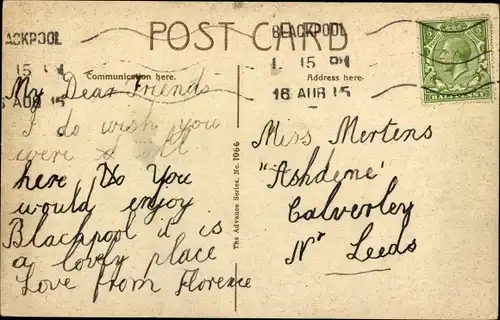 BLACKPOOL
1 15 PM
16 AUG 15
POST CARD
BLACKPOOL
1. 15 PM
16 AUG 15
Communication here.
Address here.
My Dear Friends
I do wish you
were all
here, Do You
would enjoy
Blackpool it is
a lovely place
Love from Florence
The Advance Series, No. 1066
Miss Mertens
"Ashdene"
Calverley
Nr Leeds